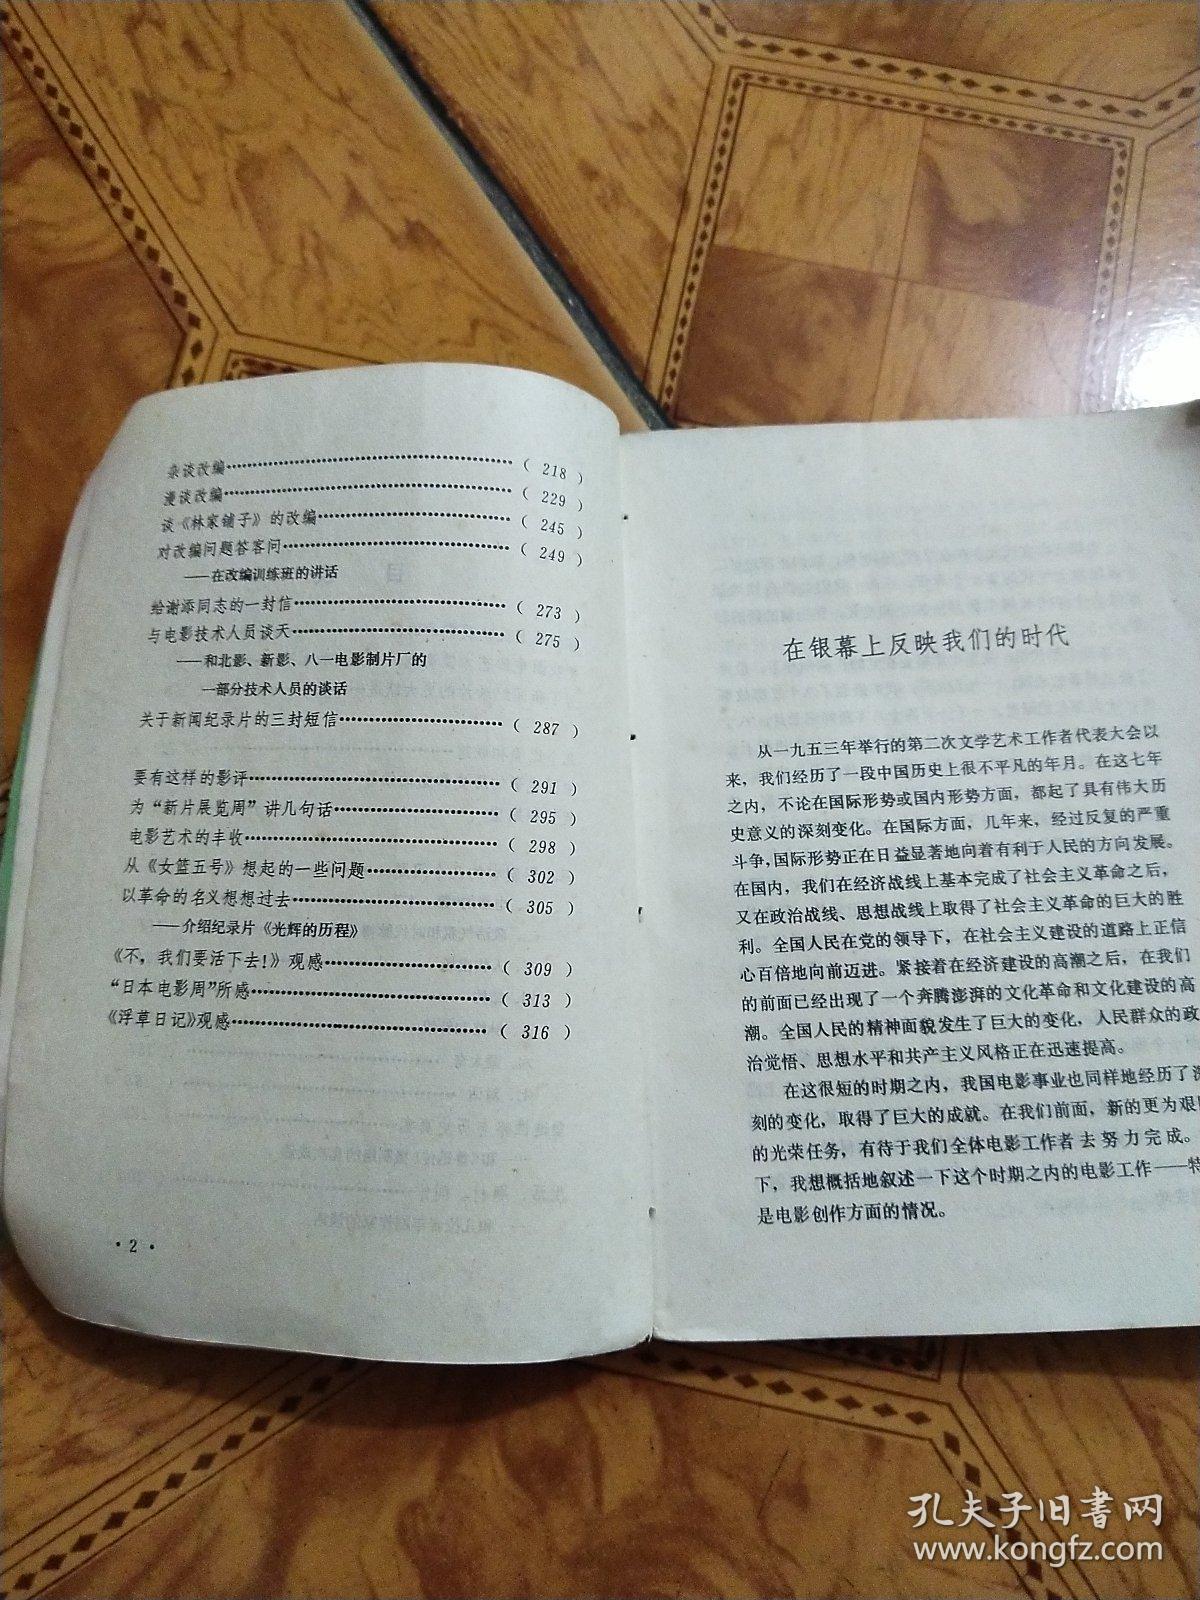 杂谈改编……………………………………………( 218 )
漫谈改编……………………………………………( 229 )
谈《林家铺子》的改编……………………………( 245 )
对改编问题答客问…………………………………( 249 )
——在改编训练班的讲话
给谢添同志的一封信………………………………( 273 )
与电影技术人员谈天………………………………( 275 )
——和北影、新影、八一电影制片厂的
一部分技术人员的谈话
关于新闻纪录片的三封短信………………………( 287 )
要有这样的影评……………………………………( 291 )
为“新片展览周”讲几句话………………………( 295 )
电影艺术的丰收……………………………………( 298 )
从《女篮五号》想起的一些问题…………………( 302 )
以革命的名义想想过去……………………………( 305 )
——介绍纪录片《光辉的历程》
《不，我们要活下去！》观感……………………( 309 )
“日本电影周”所感………………………………( 313 )
《浮草日记》观感…………………………………( 316 )
·2·
在银幕上反映我们的时代
从一九五三年举行的第二次文学艺术工作者代表大会以
来，我们经历了一段中国历史上很不平凡的年月。在这七年
之内，不论在国际形势或国内形势方面，都起了具有伟大历
史意义的深刻变化。在国际方面，几年来，经过反复的严重
斗争，国际形势正在日益显著地向着有利于人民的方向发展。
在国内，我们在经济战线上基本完成了社会主义革命之后，
又在政治战线、思想战线上取得了社会主义革命的巨大的胜
利。全国人民在党的领导下，在社会主义建设的道路上正信
心百倍地向前迈进。紧接着在经济建设的高潮之后，在我们
的前面已经出现了一个奔腾澎湃的文化革命和文化建设的高
潮。全国人民的精神面貌发生了巨大的变化，人民群众的政
治觉悟、思想水平和共产主义风格正在迅速提高。
在这很短的时期之内，我国电影事业也同样地经历了
刻的变化，取得了巨大的成就。在我们前面，新的更为艰
的光荣任务，有待于我们全体电影工作者去努力完成。
下，我想概括地叙述一下这个时期之内的电影工作——特
是电影创作方面的情况。
孔夫子旧书网
www.kongfz.com